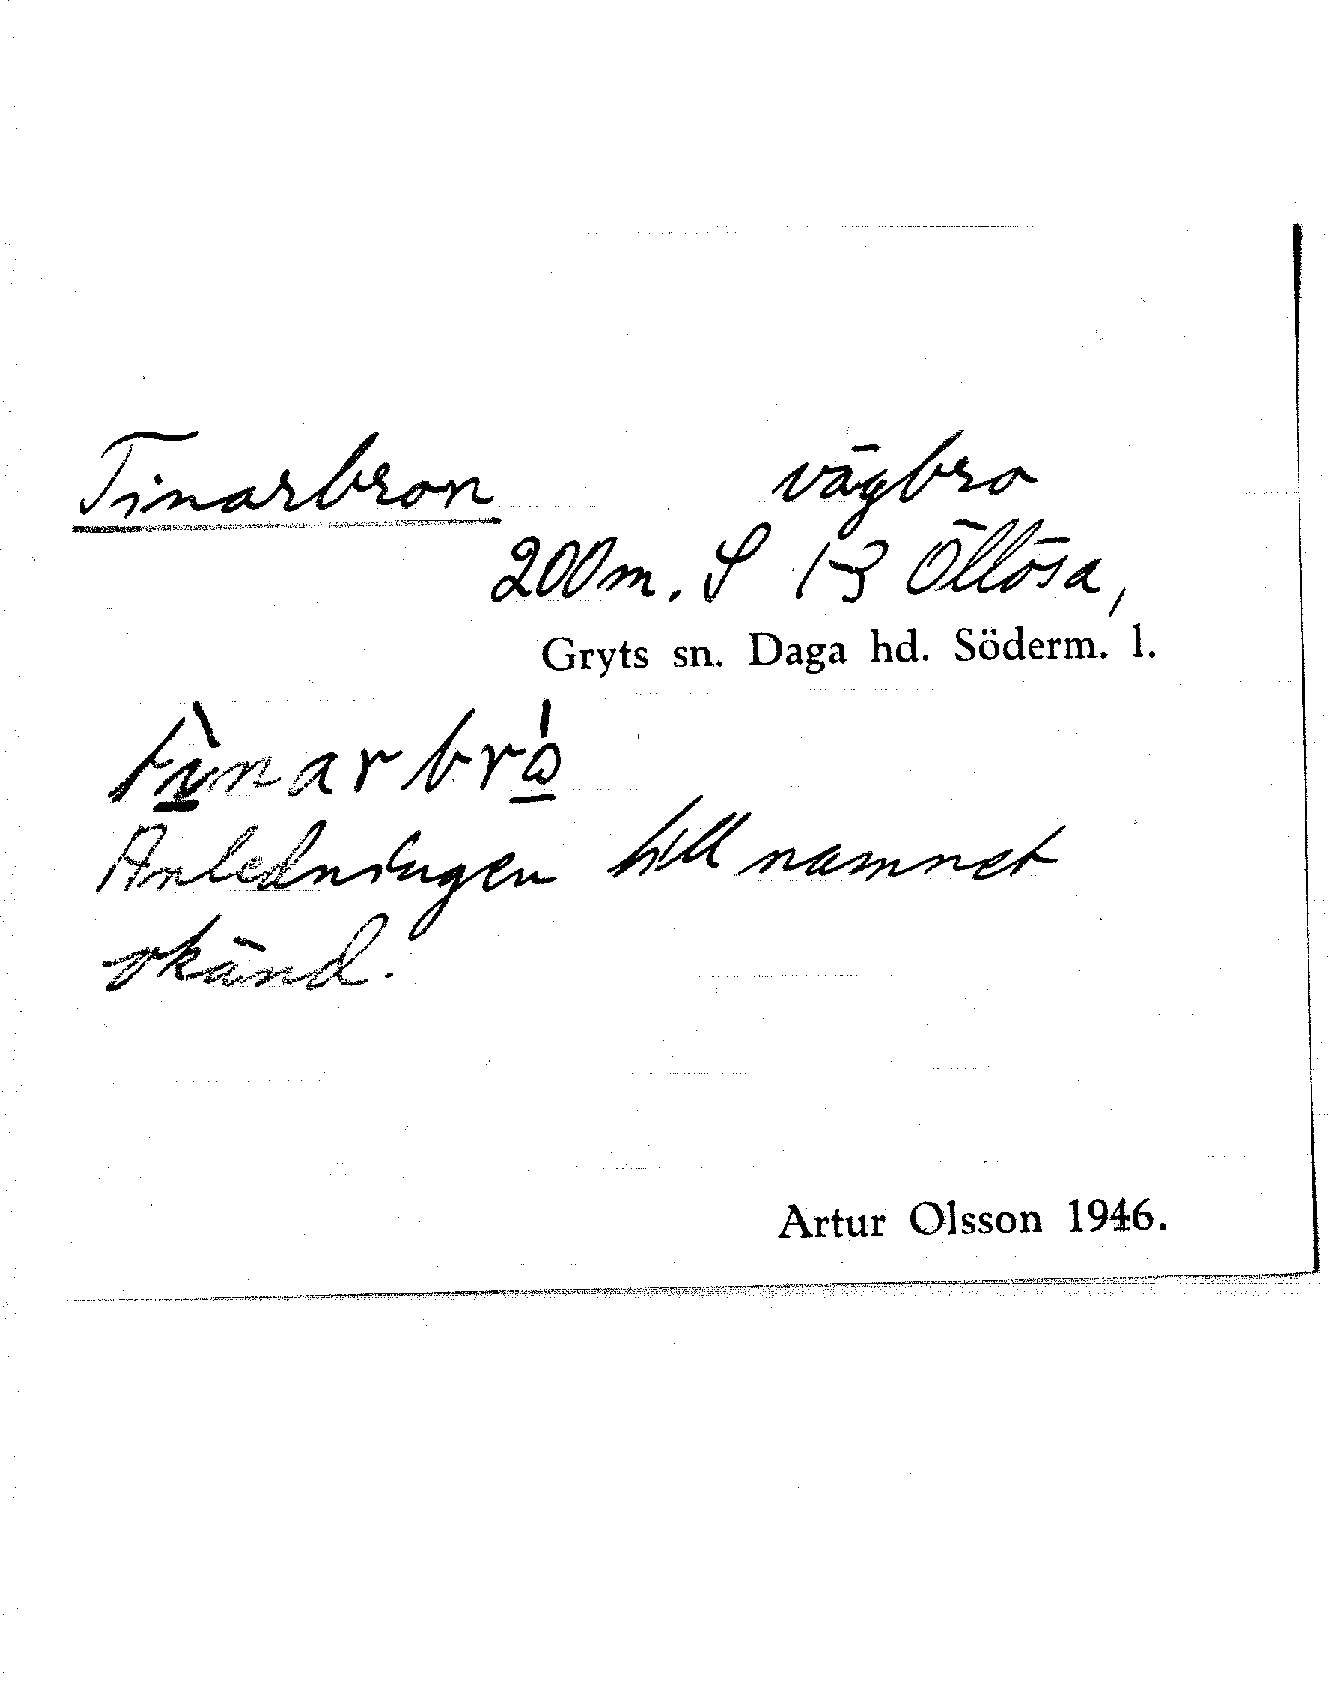 Tinarbron vägbro
200m. S 1-3 Öllösa,
Gryts sn. Daga hd. Söderm. l.
tìnarbró
Anledningen till namnet
okänd.
Artur Olsson 1946.